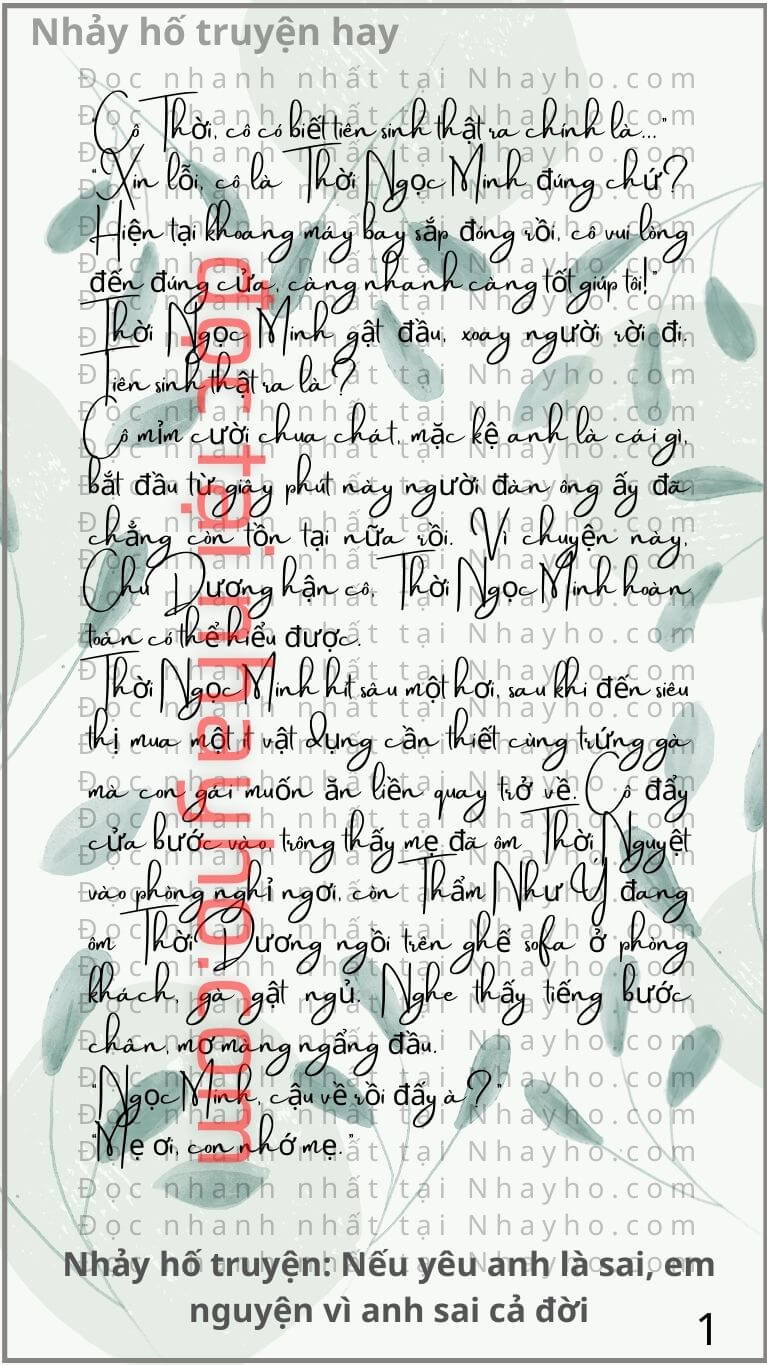 Nhảy hố truyện hay
Đọc nhanh nhất tại Nhayho.com
"Cô Thời, cô có biết tiên sinh thật ra chính là..."
"Xin lỗi, cô là Thời Ngọc Minh đúng chứ?
Hiện tại khoang máy bay sắp đóng rồi, cô vui lòng
đến đúng cửa, càng nhanh càng tốt giúp tôi!"
Thời Ngọc Minh gật đầu, xoay người rời đi.
Tiên sinh thật ra là?
Cô mỉm cười chua chát, mặc kệ anh là cái gì,
bắt đầu từ giây phút này người đàn ông ấy đã
chẳng còn tồn tại nữa rồi. Vì chuyện này,
Chu Dương hận cô, Thời Ngọc Minh hoàn
toàn có thể hiểu được.
Thời Ngọc Minh hít sâu một hơi, sau khi đến siêu
thị mua một ít vật dụng cần thiết cùng trứng gà
mà con gái muốn ăn liền quay trở về. Cô đẩy
cửa bước vào, trông thấy mẹ đã ôm Thời Nguyệt
vào phòng nghỉ ngơi, còn Thẩm Như Ý đang
ôm Thời Dương ngồi trên ghế sofa ở phòng
khách, gà gật ngủ. Nghe thấy tiếng bước
chân, mơ màng ngẩng đầu.
"Ngọc Minh, cậu về rồi đấy à?"
"Mẹ ơi, con nhớ mẹ."
đọc tại nhayho.com
Nhảy hố truyện: Nếu yêu anh là sai, em
nguyện vì anh sai cả đời
1